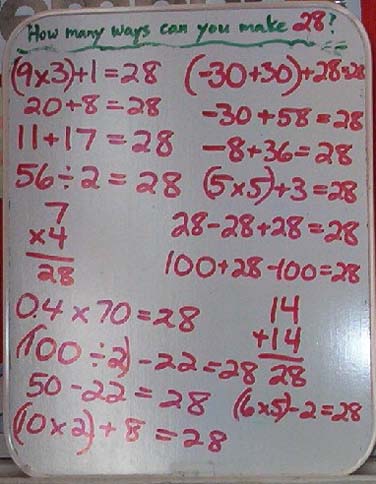 How many ways can you make 28?
(9x3)+1=28
(-30+30)+28=28
20+8=28
-30+58=28
11+17=28
-8+36=28
56÷2=28
(5x5)+3=28
7
x4
28
28-28+28=28
100+28-100=28
0.4x70=28
14
+14
28
(100÷2)-22=28
50-22=28
(6x5)-2=28
(10x2)+8=28